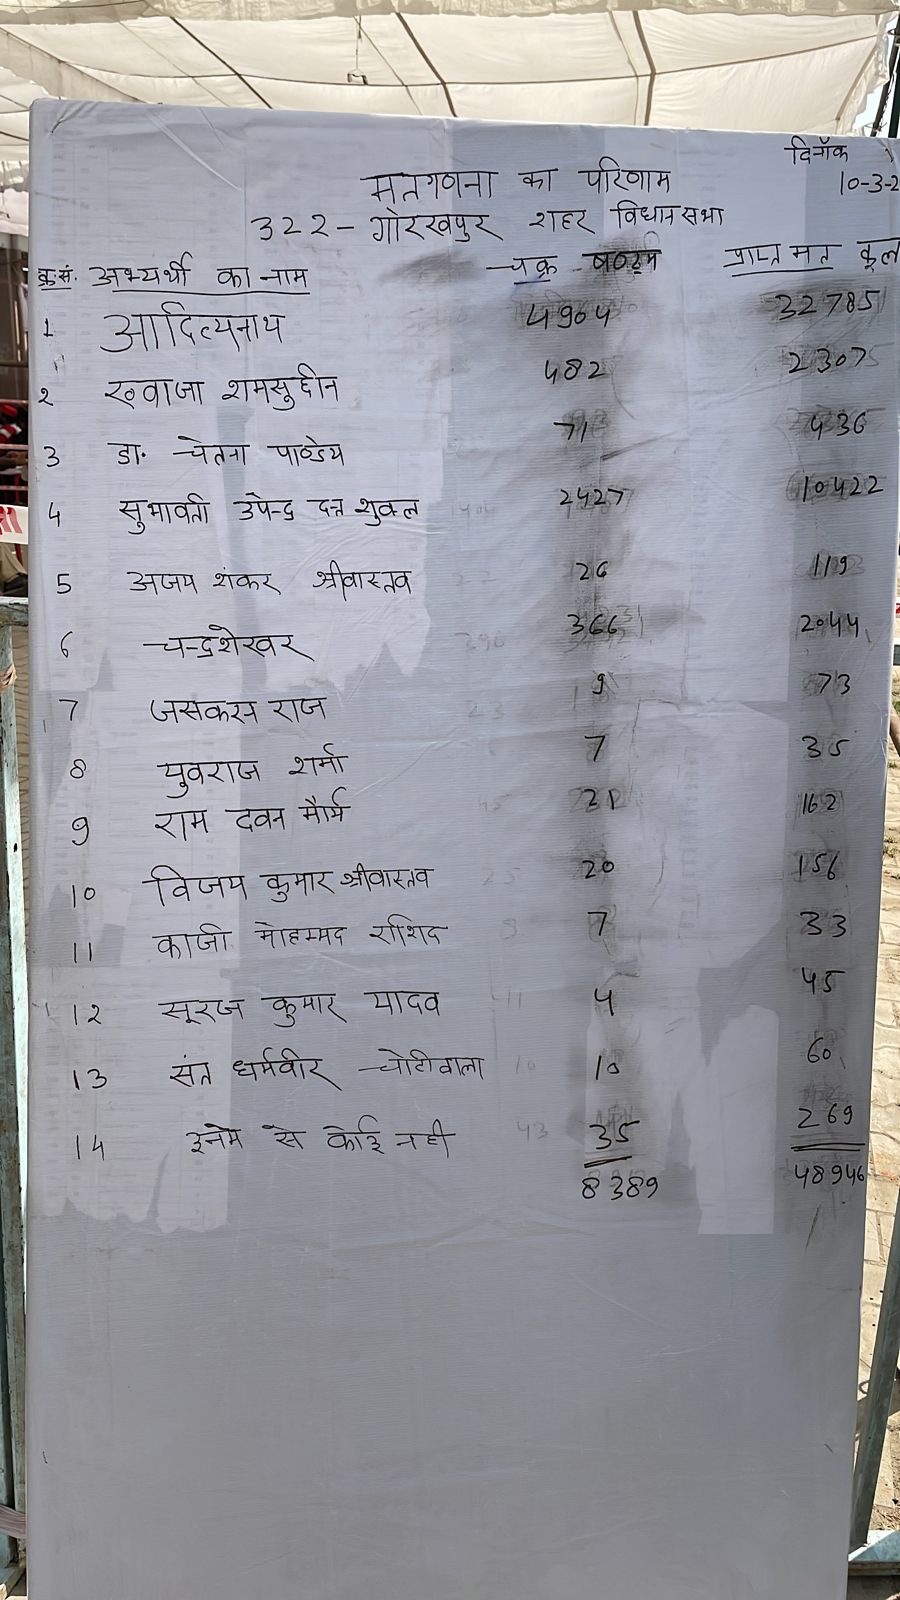 दिनाँक
10-3-2
मतगणना का परिणाम
322- गोरखपुर शहर विधानसभा
क्र.सं. अभ्यर्थी का नाम चक्र षष्ठम प्राप्त मत कुल
1 आदित्यनाथ 4904 32785
2 ख्वाजा शमसुद्दीन 482 2307
3 डा. चेतना पाण्डेय 71 436
4 सुभावती उपेन्द्र दत्त शुक्ल 2427 10422
5 अजय शंकर श्रीवास्तव 26 119
6 चन्द्रशेखर 366 2044
7 जसकरन राज 9 73
8 युवराज शर्मा 7 35
9 राम दवन मौर्य 21 162
10 विजय कुमार श्रीवास्तव 20 156
11 काजी मोहम्मद राशिद 7 33
12 सूरज कुमार यादव 4 45
13 संत धर्मवीर चोटीवाला 10 60
14 इनमे से कोई नही 35 269
8389 48946